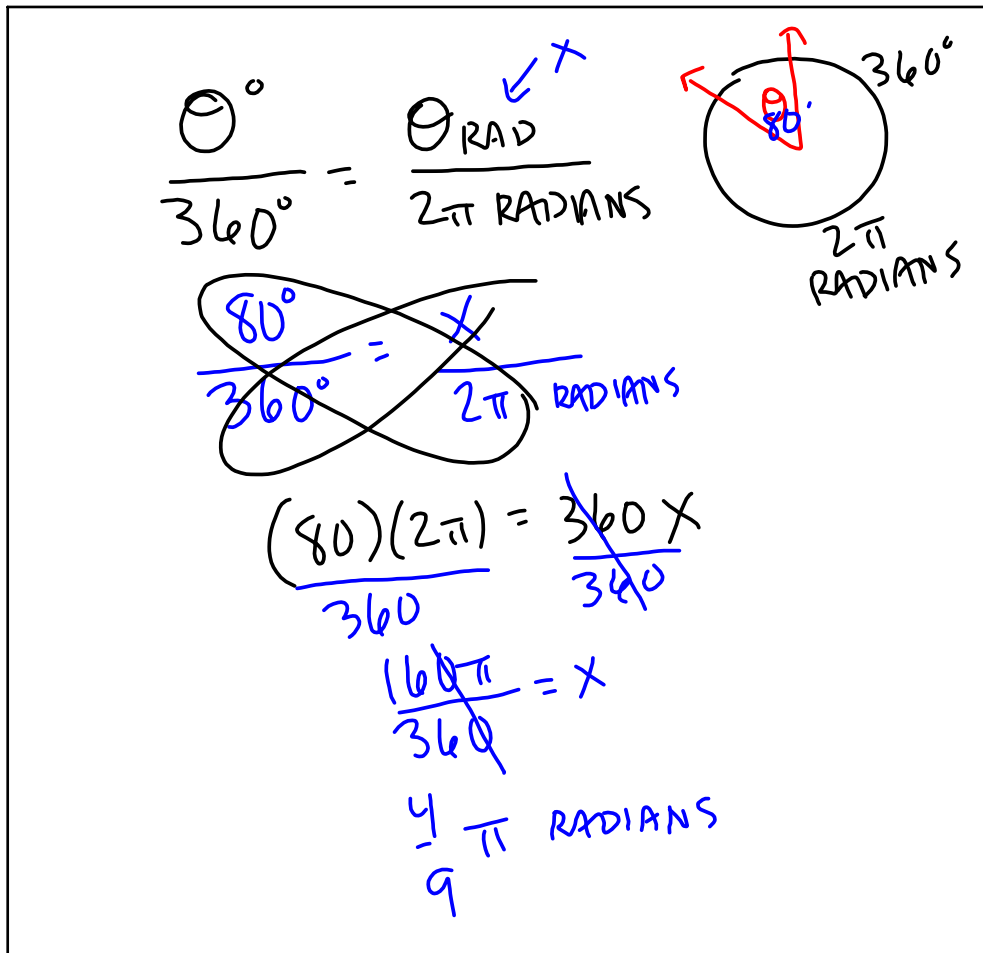 x
θ° / 360° = θ RAD / 2π RADIANS
360°
θ
80°
2π
RADIANS
80° / 360° = x / 2π RADIANS
(80)(2π) / 360 = 360x / 360
160π / 360 = x
4/9 π RADIANS